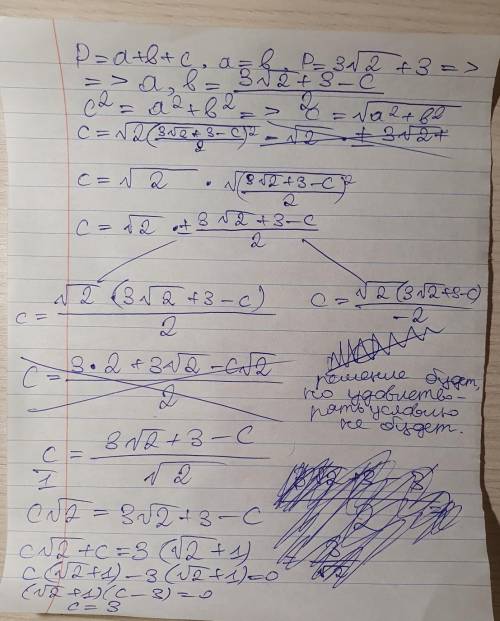 P=a+в+c, a=в, P=3√2+3=>
=> a,в=(3√2+3-c)/2
c²=a²+в² => c=√(a²+в²)
c=√(2((3√2+3-c)/2)²) = √2 · ± 3√2+
c=√2 · √((3√2+3-c)/2)²
c=√2 · ± (3√2+3-c)/2
c=(√2 (3√2+3-c))/2
c=(√2(3√2+3-c))/-2
решение будет,
но удовлетво-
рять условию
не будет.
c=(3·2+3√2-c√2)/2
c/1=(3√2+3-c)/√2
c√2=3√2+3-c
c√2+c=3(√2+1)
c(√2+1)-3(√2+1)=0
(√2+1)(c-3)=0
c=3